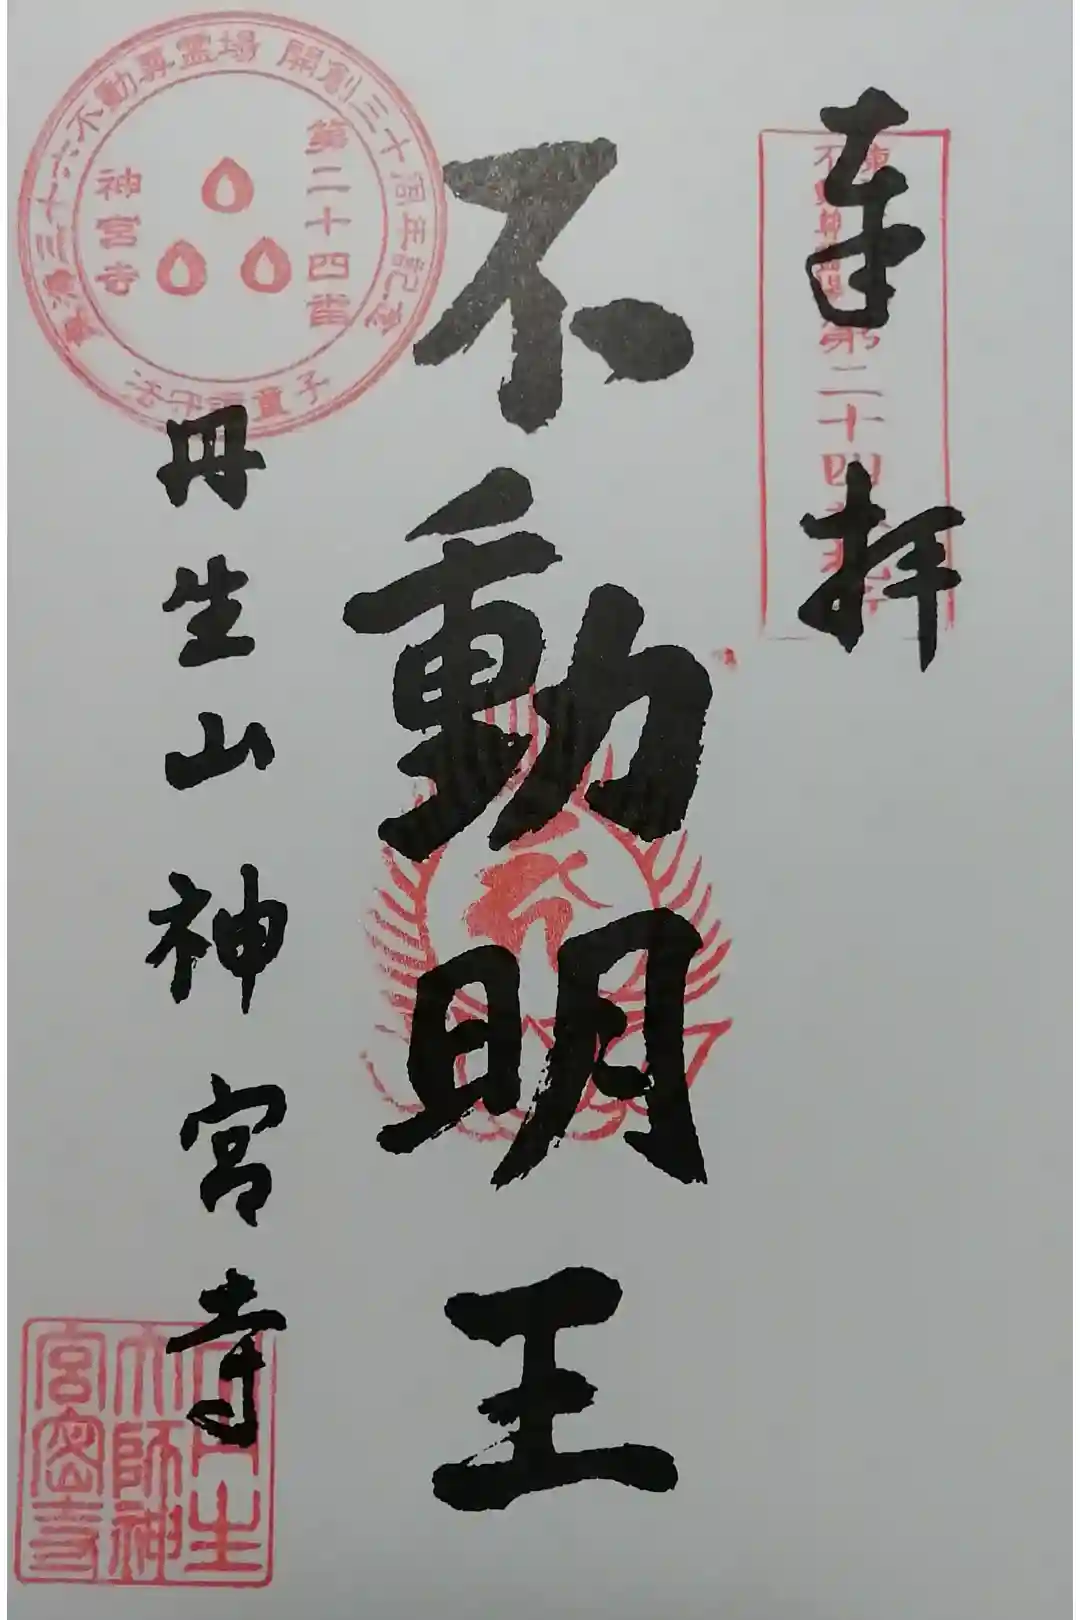 奉拝
第二十四番札所
不動明王
丹生山神宮寺
東海三十六不動尊霊場 開創三十周年記念
第二十四番
神宮寺
童子
丹生
大師神
宮密寺